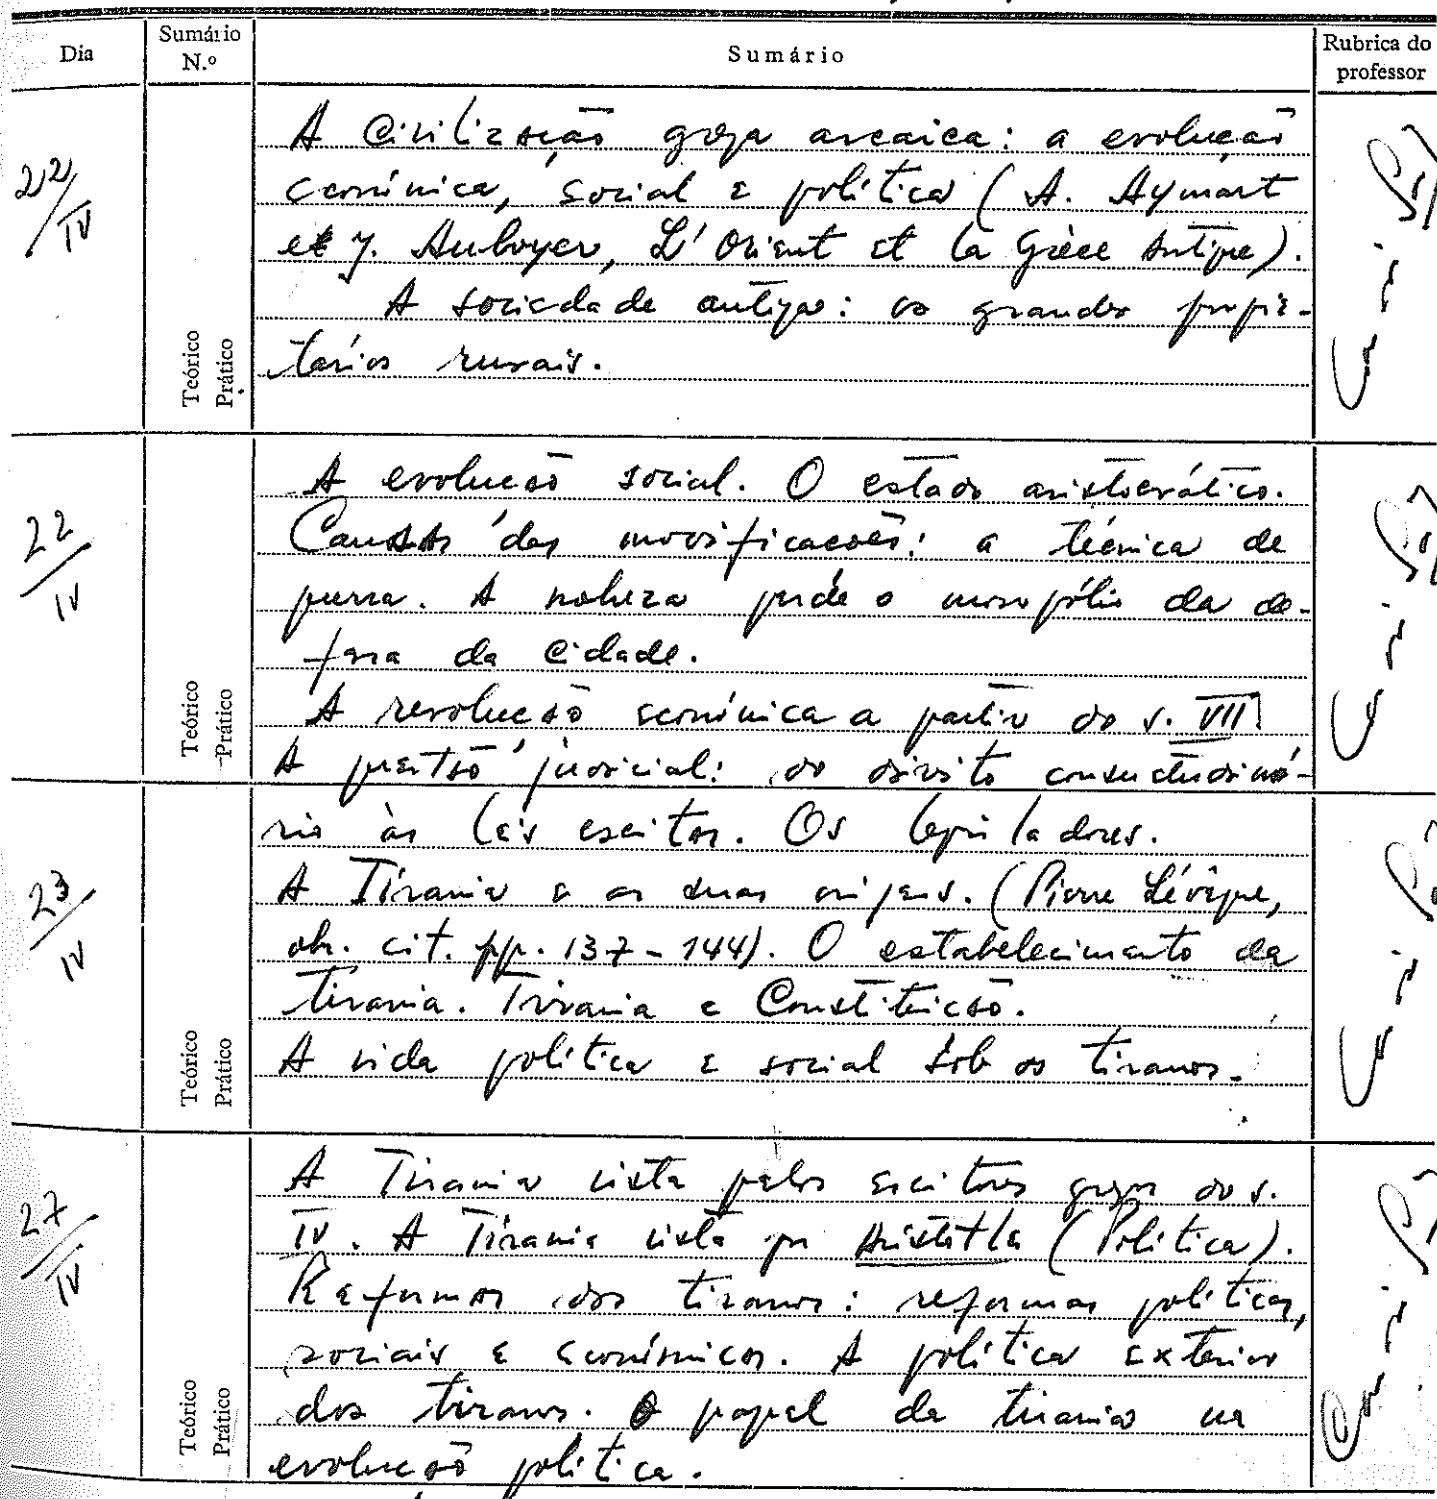 Dia
Sumário N.º
Sumário
Rubrica do professor
22/IV
Teórico
Prático
A Civilização grega arcaica: a evolução
económica, social e política (A. Aymart
et J. Auboyer, L'Orient et la Grèce Antique).
A sociedade antiga: os grandes proprie-
tários rurais.
22/IV
Teórico
Prático
A evolução social. O estado aristocrático.
Causas das modificações: a técnica de
guerra. A nobreza perde o monopólio da de-
fesa da cidade.
A revolução económica a partir do s. VII.
A questão judicial: do direito consuetudiná-
23/IV
Teórico
Prático
rio às leis escritas. Os legisladores.
A Tirania e as suas origens. (Pierre Lévêque,
ob. cit. pp. 137-144). O estabelecimento da
tirania. Tirania e Constituição.
A vida política e social sob os tiranos.
27/IV
Teórico
Prático
A Tirania vista pelos escritores gregos do s.
IV. A Tirania vista por Aristótles (Política).
Reformas dos tiranos: reformas políticas,
sociais e económicas. A política exterior
dos tiranos. O papel da tirania na
evolução política.